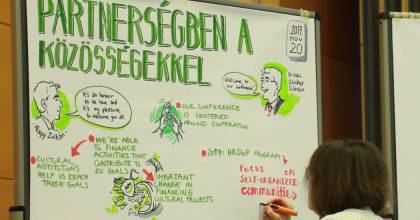 PARTNERSÉGBEN A
KÖZÖSSÉGEKKEL
2017.
nov
20
It's an honour
to be here, and
it's my pleasure
to welcome you all
Nagy Zoltán
Welcome to
our conference!
OUR CONFERENCE
IS CENTERED
AROUND COOPERATION
CULTURAL
INSTITUTIONS
HELP US REACH
THESE GOALS
WE'RE ABLE
TO FINANCE
ACTIVITIES THAT
CONTRIBUTE TO
EU GOALS
IMPORTANT
CHANGE IN
FINANCING
CULTURAL PROJECTS
2014: HRDOP PROGRAM
FOCUS ON
SELF-ORGANIZED
COMMUNITIES